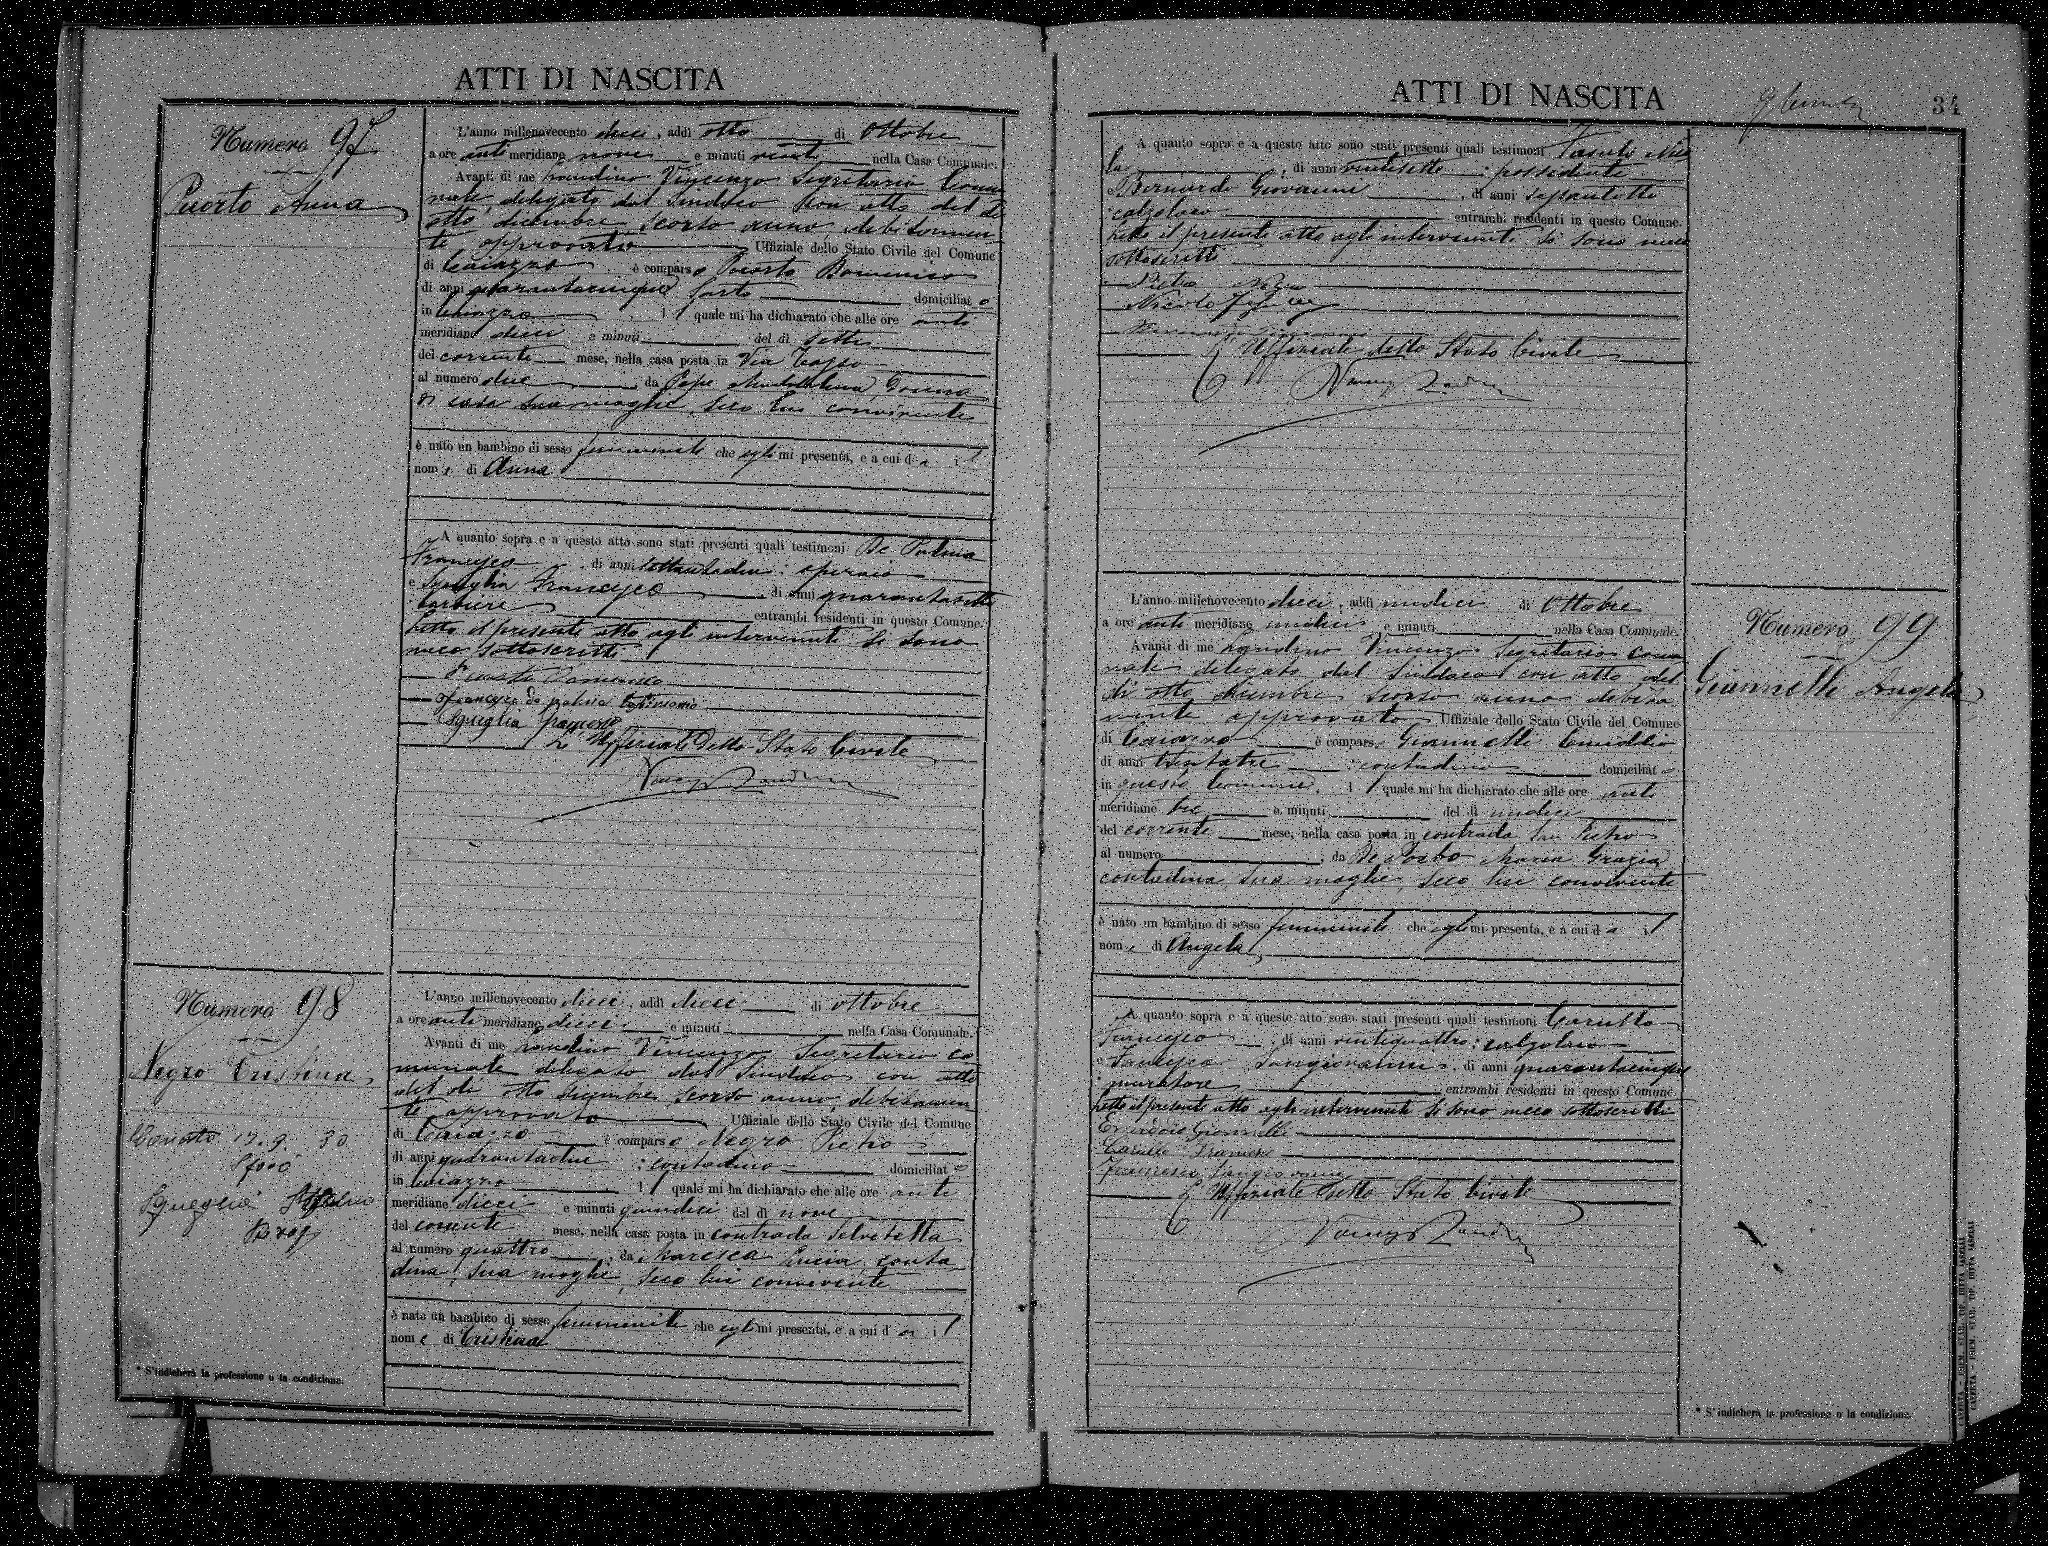 ATTI DI NASCITA
Numero 97
Puorto Anna
L'anno millenovecento dieci, addì otto di Ottobre
a ore anti meridiane nove e minuti venti nella Casa Comunale.
Avanti di me Mandino Vincenzo Segretario Comu
nale delegato dal Sindaco con atto del dì
otto dicembre scorso anno debitamen
te approvato Uffiziale dello Stato Civile del Comune
di Caiazzo è comparso Puorto Domenico
di anni quarantacinque sarto domiciliato
in Caiazzo il quale mi ha dichiarato che alle ore anti
meridiane dieci e minuti del dì sette
del corrente mese, nella casa posta in Via
al numero due, da Pepe Maddalena, donna
di casa sua moglie, seco lui convivente
è nato un bambino di sesso femminile che egli mi presenta, e a cui dà il
nome di Anna
A quanto sopra e a questo atto sono stati presenti quali testimoni De Padova
Francesco, di anni operaio
e Squeglia Francesco, di anni quarantasette
barbiere entrambi residenti in questo Comune.
Letto il presente atto agli intervenuti si sono
meco sottoscritti
Puorto Domenico
Francesco testimonio
Squeglia Francesco
L'Uffiziale dello Stato Civile
Numero 98
Negro Cristina
L'anno millenovecento dieci, addì dieci di ottobre
a ore anti meridiane dieci e minuti nella Casa Comunale.
Avanti di me Mandino Vincenzo Segretario co
munale delegato dal Sindaco con atto
del dì otto dicembre scorso anno, debitamen
te approvato Uffiziale dello Stato Civile del Comune
di Caiazzo è comparso Negro Pietro
di anni quarantadue: contadino domiciliato
in Caiazzo il quale mi ha dichiarato che alle ore anti
meridiane dieci e minuti quindici del dì nove
del corrente mese, nella casa posta in contrada Selvetella
al numero quattro, da Maresca Lucia, conta
dina, sua moglie, seco lui convivente
è nato un bambino di sesso femminile che egli mi presenta, e a cui dà il
nome di Cristina
17.9.30
Sposò
Squeglia
* S'indicherà la professione o la condizione.
ATTI DI NASCITA
34
A quanto sopra e a questo atto sono stati presenti quali testimoni Nico
la, di anni ventisette: possidente
e Bernardo Giovanni, di anni sessantotto
calzolaio entrambi residenti in questo Comune.
Letto il presente atto agli intervenuti si sono meco
sottoscritti
Pietro Negro
L'Uffiziale dello Stato Civile
Numero 99
Giannelli Angela
L'anno millenovecento dieci, addì undici di Ottobre
a ore anti meridiane undici e minuti nella Casa Comunale.
Avanti di me Mandino Vincenzo Segretario comu
nale delegato dal Sindaco con atto del
dì otto dicembre scorso anno debita
mente approvato Uffiziale dello Stato Civile del Comune
di Caiazzo è comparso Giannelli Emiddio
di anni trentatre: contadino domiciliato
in questo Comune, il quale mi ha dichiarato che alle ore anti
meridiane tre e minuti del dì undici
del corrente mese, nella casa posta in contrada San Pietro
al numero, da Maria Grazia
contadina sua moglie, seco lui convivente
è nato un bambino di sesso femminile che egli mi presenta, e a cui dà il
nome di Angela
A quanto sopra e a questo atto sono stati presenti quali testimoni Carullo
Francesco, di anni ventiquattro: calzolaio
e Francesco Sangiovanni, di anni quarantacinque
muratore entrambi residenti in questo Comune
Letto il presente atto agli intervenuti si sono meco sottoscritti
Emiddio Giannelli
Carullo Francesco
Francesco Sangiovanni
L'Uffiziale dello Stato Civile
* S'indicherà la professione o la condizione.